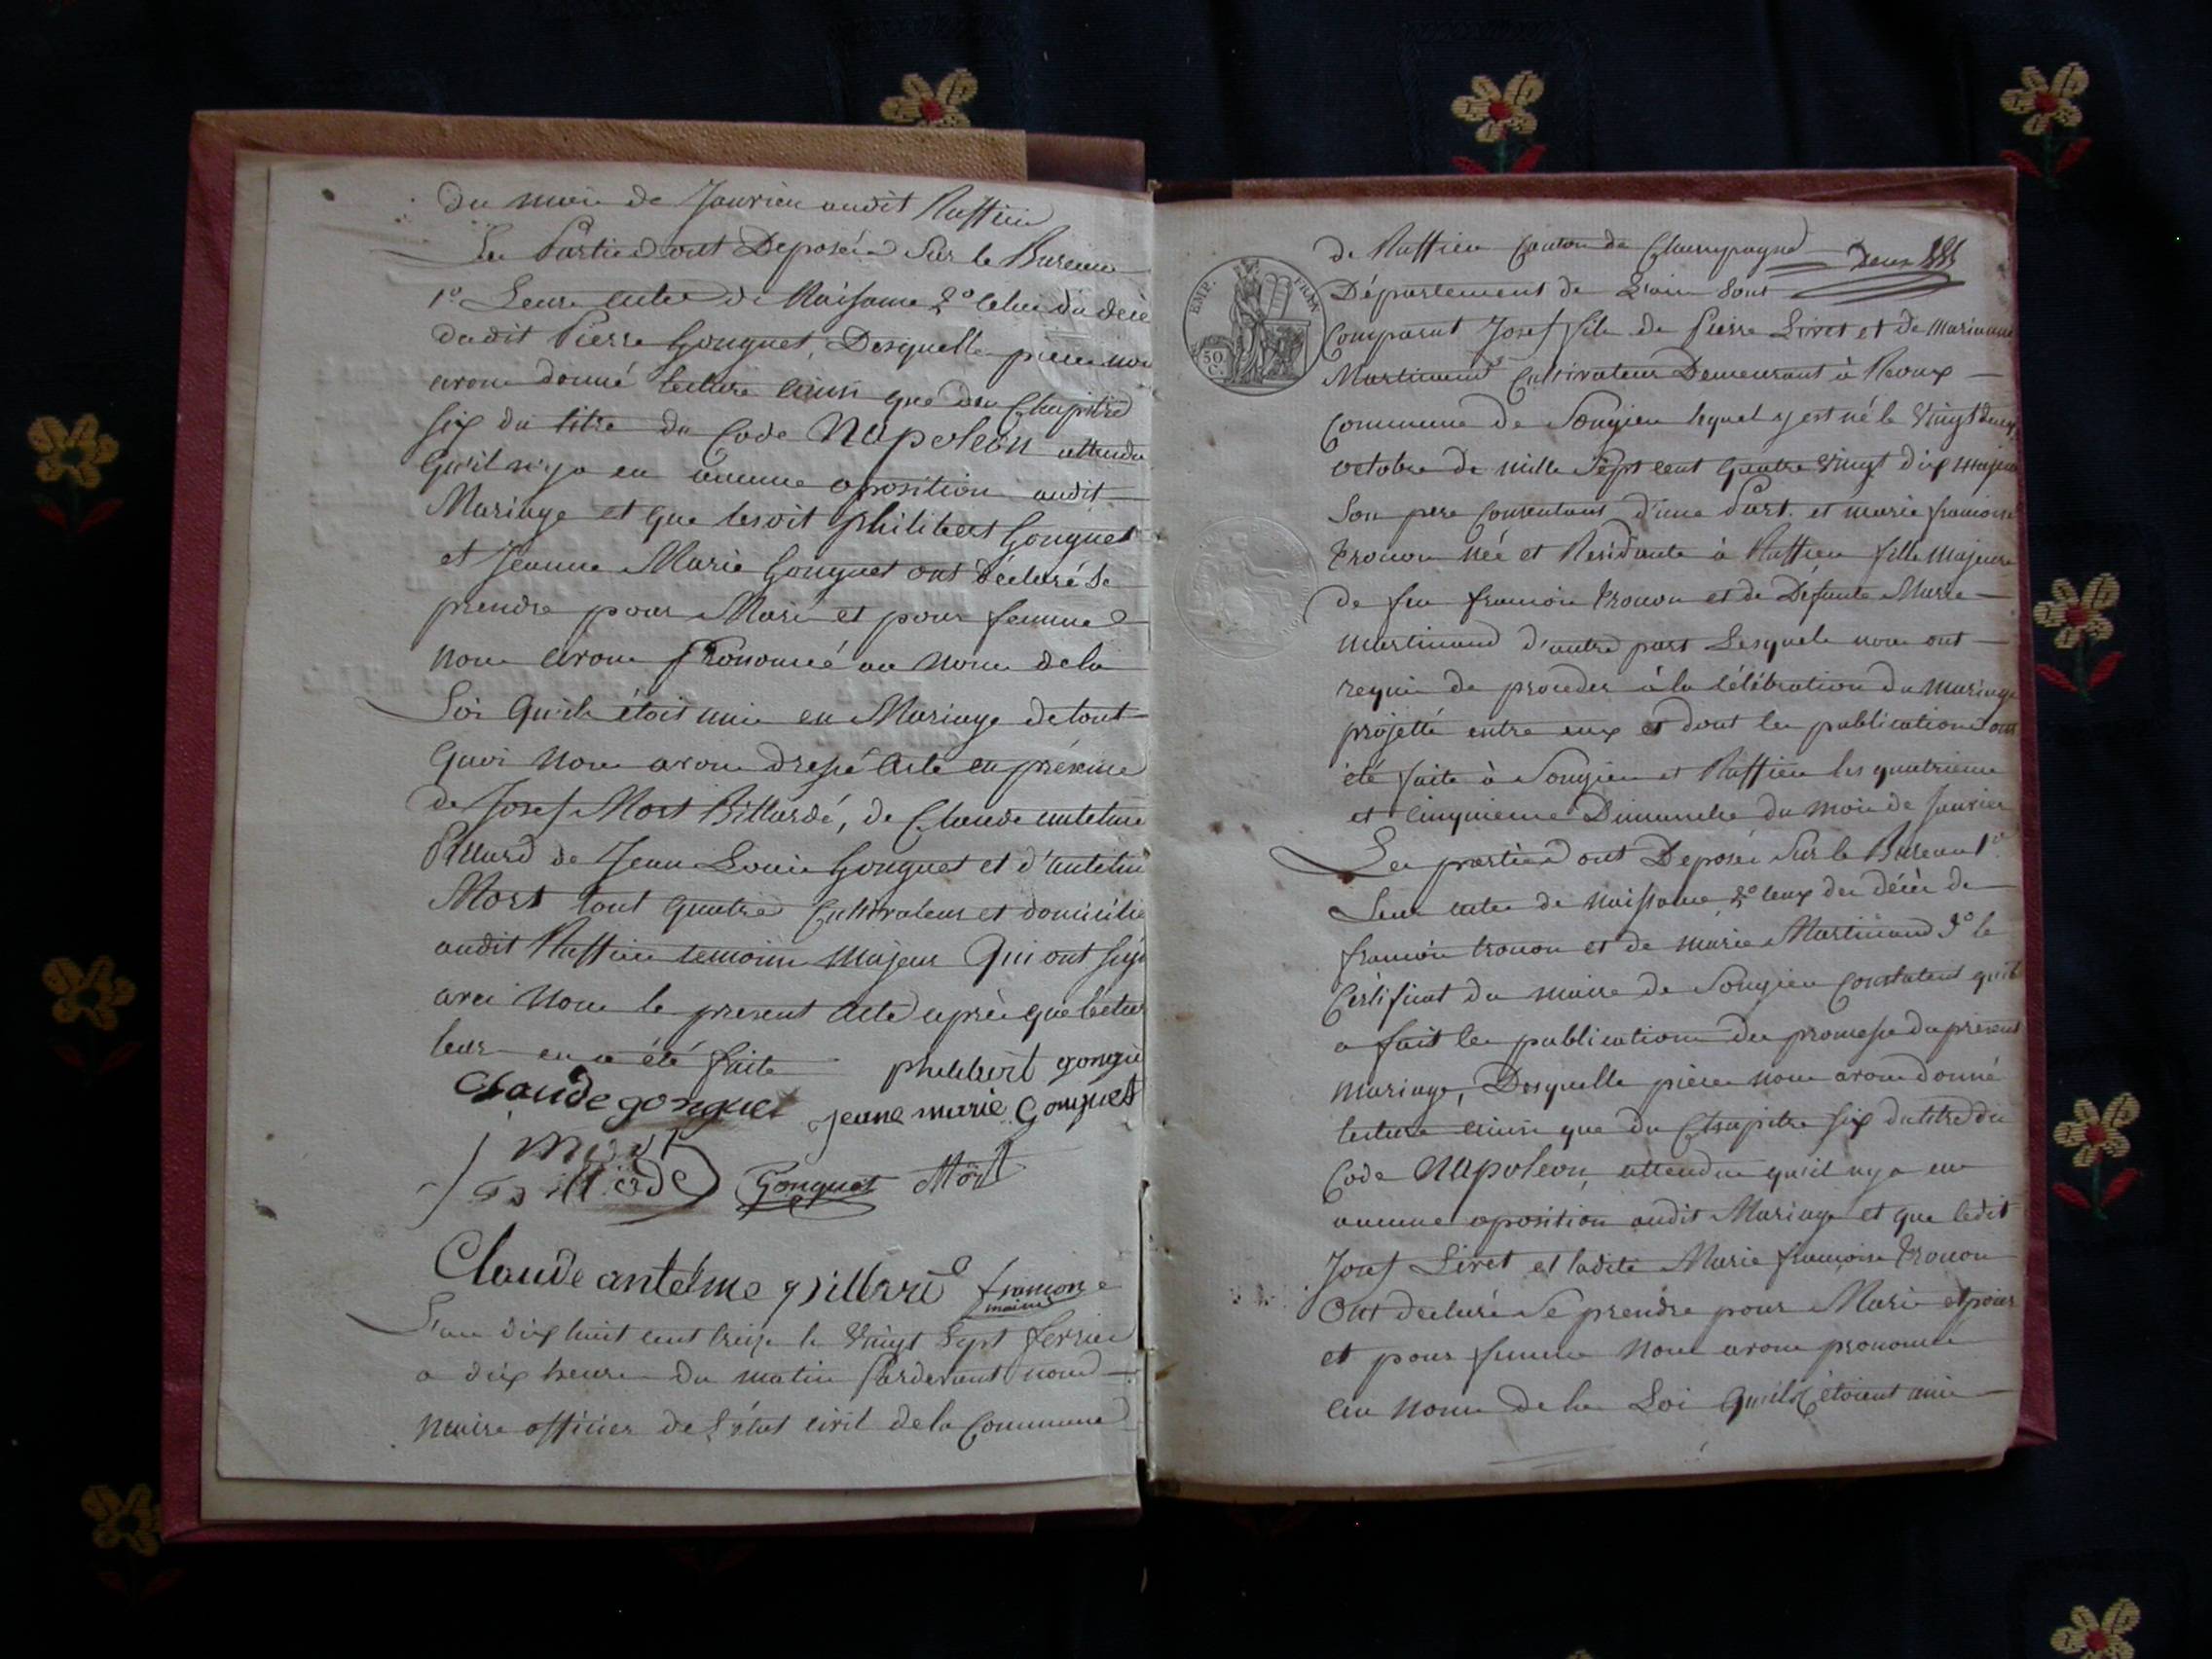 du mois de Janvier audit Ruffieu
Les Parties ont Déposées Sur le Bureau
1º Leurs actes de Naissance 2º Celui du décè
dudit Pierre Gonguet, Desquelles pieces nous
avons donné lecture ainsi que du Chapitre
six du titre du Code Napoleon attendu
Qu'il n'y a eu aucune oposition audit
Mariage et que lesdit philibert Gonguet
et Jeanne Marie Gonguet ont déclaré se
prendre pour Mari et pour femme
nous avons Prononcé au Nom de la
Loi Qu'ils étoit unis en Mariage de tout
Quoi Nous avons dressé Acte en présence
de Josef Mort Billardé, de Claude antelme
Pillard de Jean Louis Gonguet et d'antelm
Mort tout quatre Cultivateurs et domicilié
audit Ruffieu temoins Majeur Qui ont signé
avec Nous le present Acte après que lectur
leur en a été faite
philibert gongue
Claude gonguet
jeane marie Gonguet
j mort
Gonguet Mort
Claude antelme pillard
françon
maire
L'an dix huit cent treize le Vingt Sept fevrier
a dix heures du matin Pardevant nous
Maire officier de L'état civil de la Commune
de Ruffieu Canton de Champagne
Deux
Département de Lain Sont
EMP. FRANÇ.
50 C.
Comparut Josef fils de Pierre Livet et de Marianne
Martinand Cultivateur Demeurant à
Commune de Songieu lequel y est né le Vingt deux
octobre de mille Sept cent Quatre Vingt dix Majeur
Son pere Consentant d'une Part. et marie françoise
Tronon née et Residante à Ruffieu fille Majeure
de feu françois Tronon et de Défunte Marie
Martinand d'autre part Lesquels nous ont
requis de proceder à la célébration du Mariage
projetté entre eux et dont les publications ont
été faite à Songieu et Ruffieu les quatrieme
et Cinquieme Dimanche du mois de Janvier
Les parties ont Deposés Sur le Bureau 1º
Leur actes de Naissance 2º ceux des décès de
françois tronon et de marie Martinand 3º le
Certificat du maire de Songieu Constatant qu'il
a fait les publications des promesse du présent
Mariage, Desquelles pièces nous avons donné
lecture ainsi que du Chapitre six du titre du
Code Napoleon, attendu qu'il n'y a eu
aucune oposition audit Mariage et que ledit
Josef Livet et ladite Marie françoise Tronon
Ont déclaré Se prendre pour Mari et pour
et pour femme Nous avons prononcé
au Nom de la Loi Qu'ils étoient unis